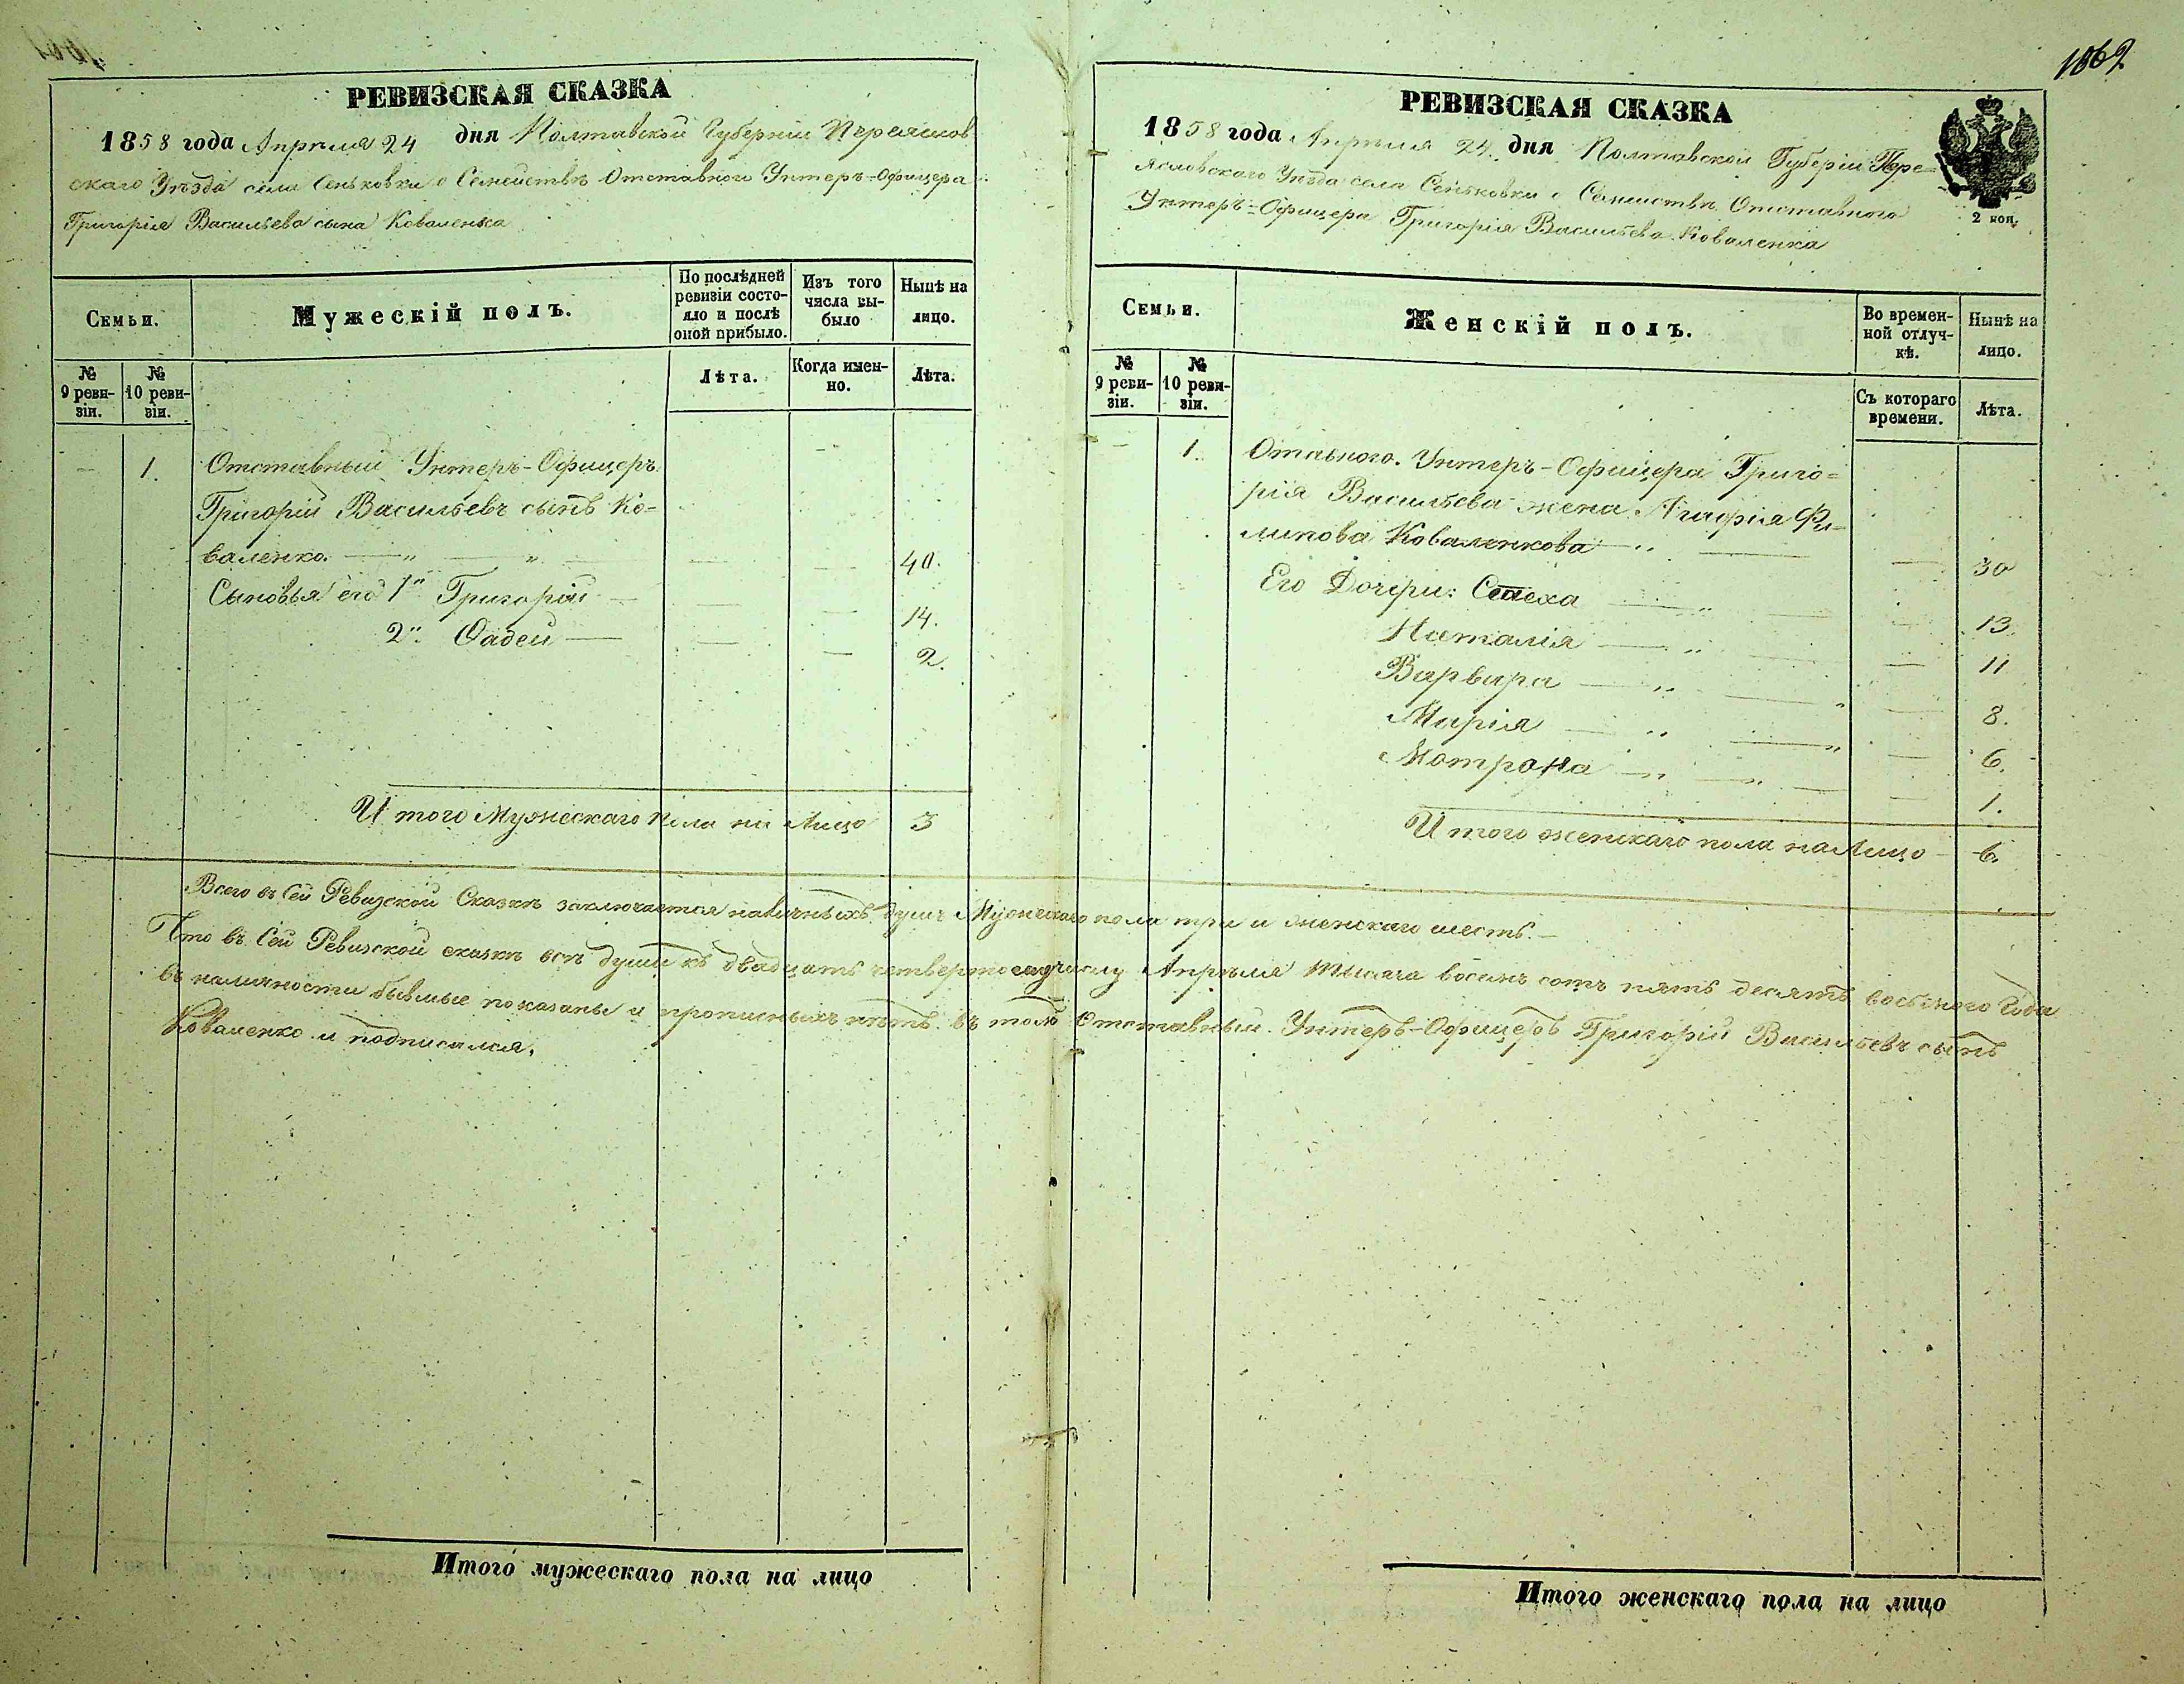 1862
РЕВИЗСКАЯ СКАЗКА
1858 года Апреля 24 дня Полтавской Губерніи Переяслов
скаго Уѣзда села Сеньковки о Семействѣ Отставного Унтеръ-Офицера
Григорія Васильева сына Коваленка
Семьи.
Мужескій полъ.
По послѣдней ревизіи состояло и послѣ оной прибыло.
Изъ того числа выбыло
Нынѣ на лицо.
№ 9 ревизіи.
№ 10 ревизіи.
Лѣта.
Когда именно.
Лѣта.
— 1. Отставный Унтеръ-Офицеръ
Григорій Васильевъ сынъ Ко-
валенко — „ — „ — — — 40.
Сыновья его 1й Григорій — — — 14.
2й Фадей — — — 2.
И того Мужескаго пола на Лицо 3
РЕВИЗСКАЯ СКАЗКА
2 коп.
1858 года Апреля 24 дня Полтавской Губеріи Пере-
яславскаго Уѣзда села Сеньковки о Семействѣ Отставного
Унтеръ-Офицера Григорія Васильева Коваленка
Семьи.
Женскій полъ.
Во временной отлучкѣ.
Нынѣ на лицо.
№ 9 ревизіи.
№ 10 ревизіи.
Съ котораго времени.
Лѣта.
— 1. Отавного Унтеръ-Офицера Григо-
рія Васильева жена Агафія Фи-
липова Коваленкова — „ — — 30
Его Дочери: — „ — — 13.
Наталія — „ — — 11
Варвара — „ — „ — 8.
Марія — „ — „ — 6.
Мотрона — „ — „ — 1.
И того женскаго пола на Лицо — 6.
Всего въ Сей Ревизской Сказкѣ заключается наличныхъ душъ Мужескаго пола три и женскаго шесть. —
Что въ Сей Ревизской сказкѣ всѣ души къ двадцать четвертому числу Апреля тысяча восемь сотъ пять десятъ восьмого Года
въ наличности бывшые показаны и прописныхъ нѣтъ въ томъ Отставный Унтеръ-Офицеръ Григорій Васильевъ сынъ
Коваленко и подписался.
Итого мужескаго пола на лицо
Итого женскаго пола на лицо